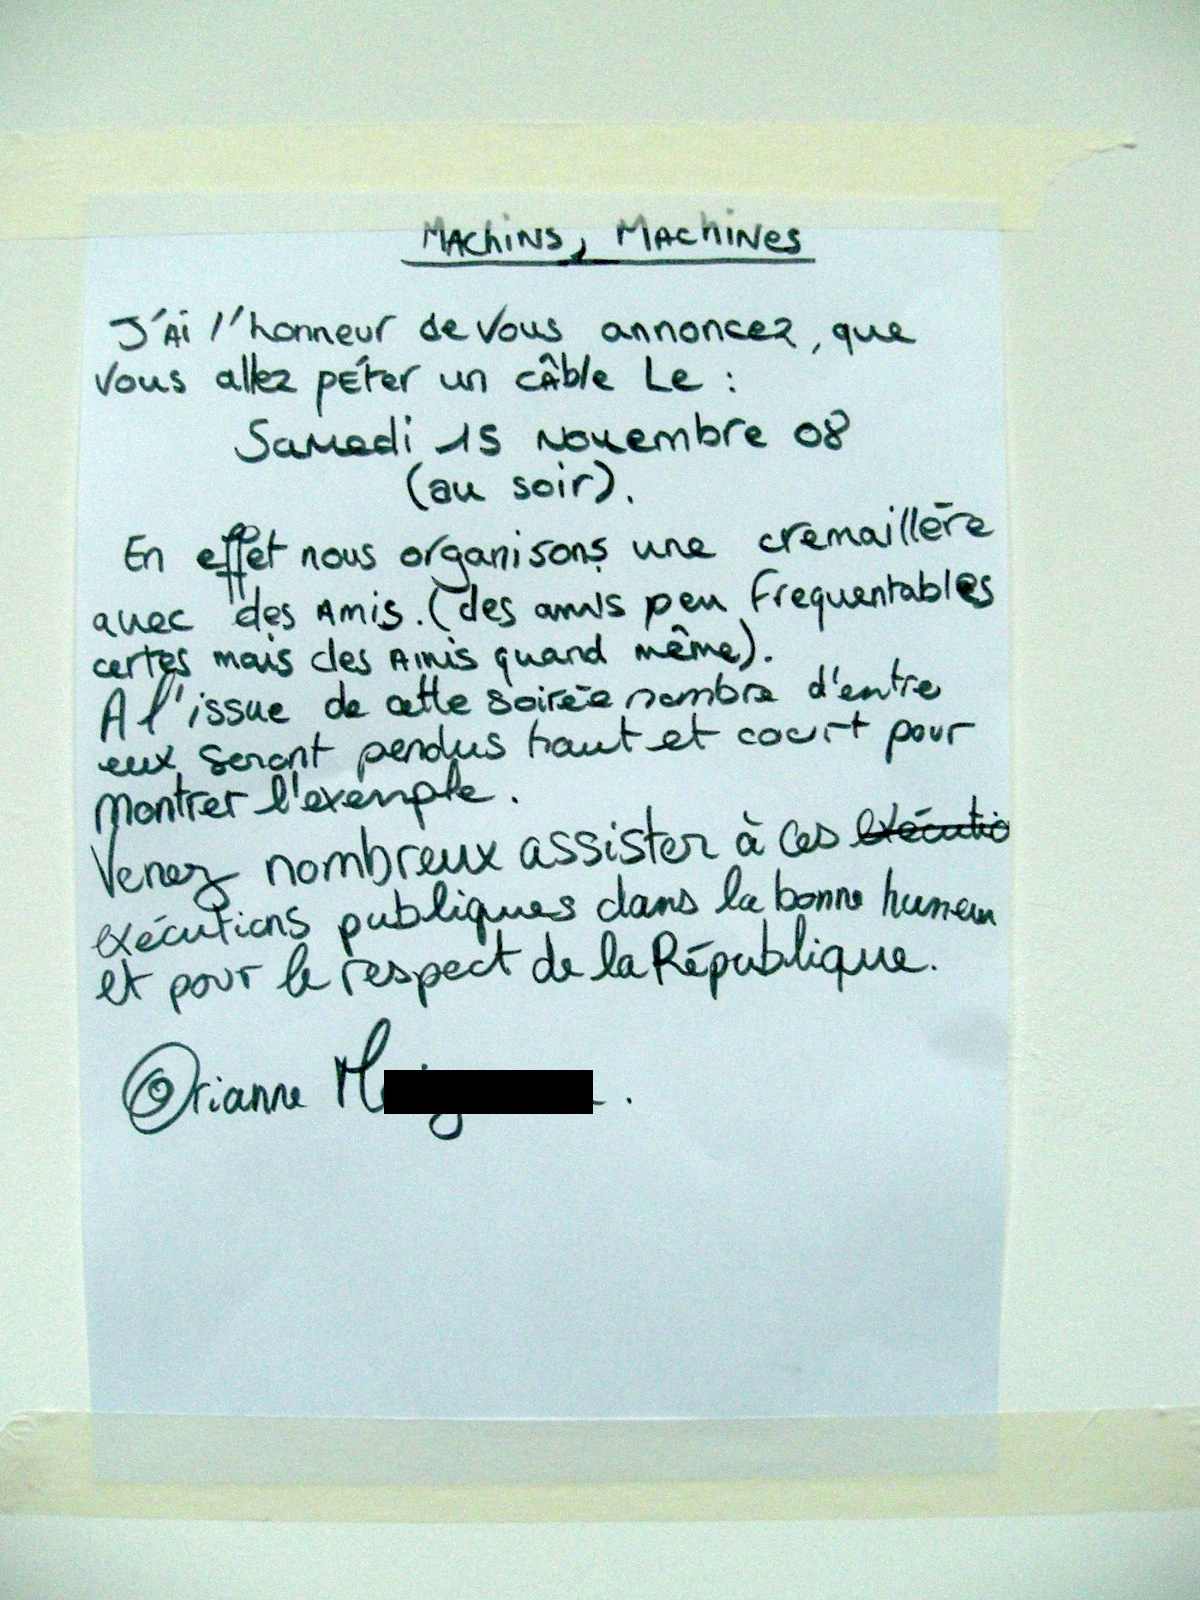 MACHINS, MACHINES
J'AI l'honneur de Vous annoncez, que
Vous allez pÉter un cÂble Le :
Samedi 15 Novembre 08
(au soir).
En effet nous organisons une cremaillère
avec des Amis. (des amis peu frequentables
certes mais des Amis quand même).
A l'issue de cette soirée nombre d'entre
eux seront pendus haut et court pour
Montrer l'exemple.
Venez nombreux assister à ces exécutio
exécutions publiques dans la bonne humeur
et pour le respect de la République.
Orianne